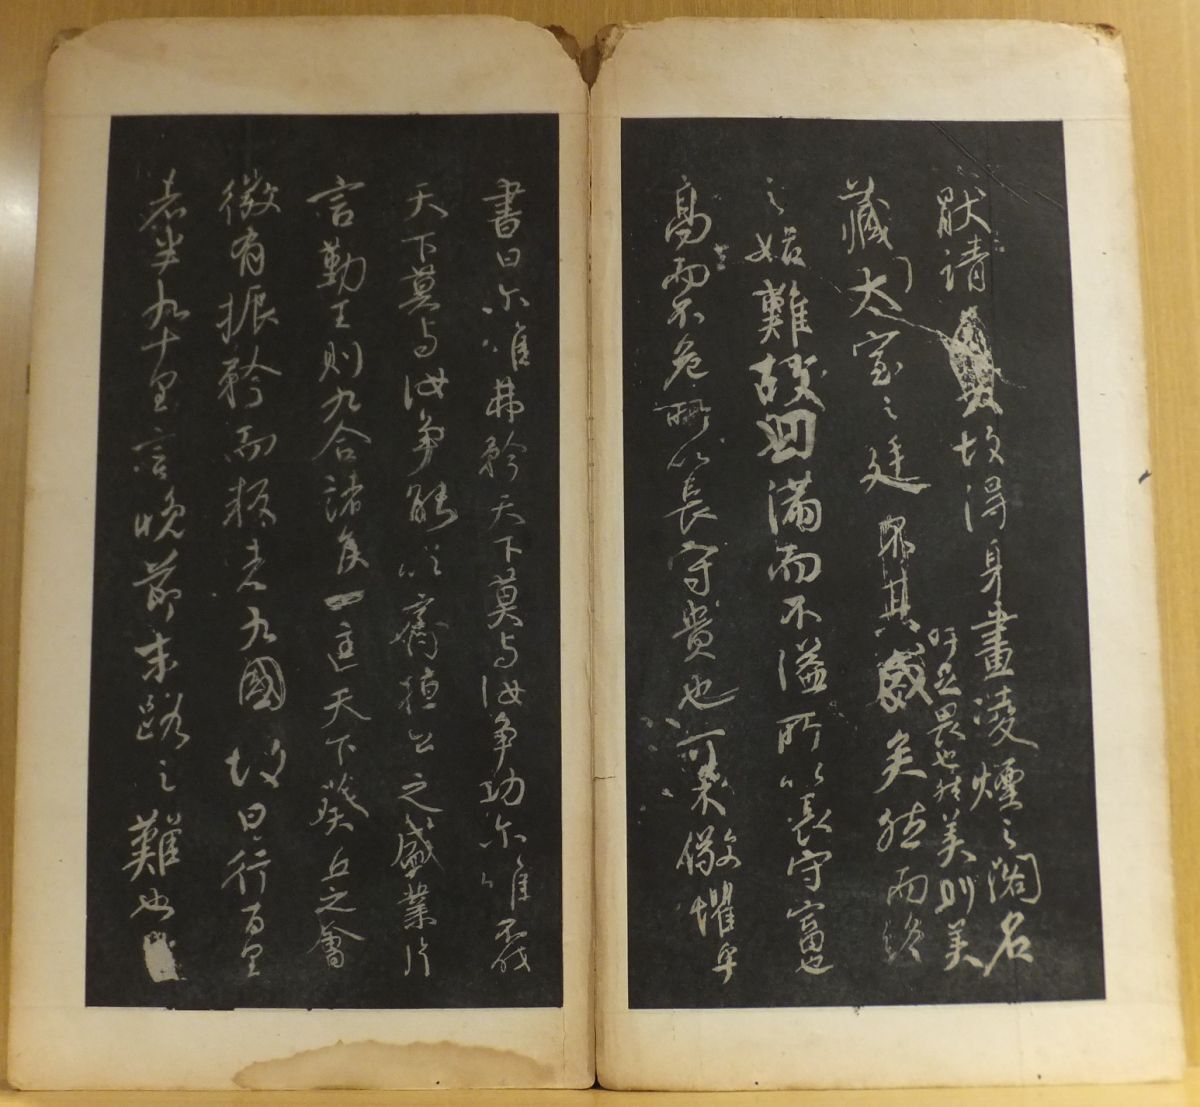 猒請故得身畫凌煙之閣名
吁足畏也然美則美
藏太室之廷其盛矣然而終
之始難故曰滿而不溢所以長守富也
高而不危所以長守貴也可不儆懼乎
書曰尔唯弗矜天下莫与汝爭功尔唯不伐
天下莫与汝爭能以齊桓公之盛業片
言勤王則九合諸侯一匡天下葵丘之會
微有振矜而叛者九國故曰行百里
者半九十里言晚節末路之難也